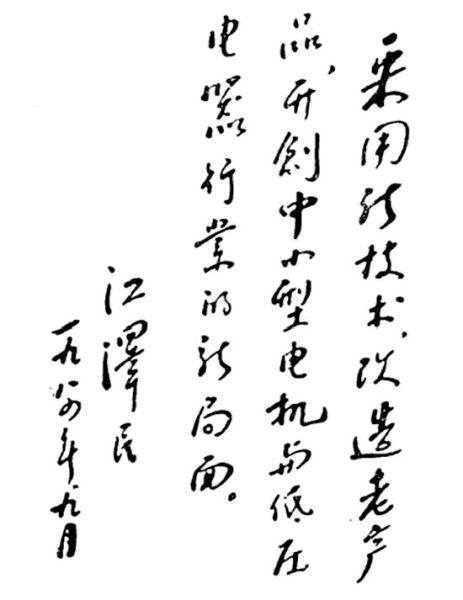 采用新技术,改造老产
品,开创中小型电机与低压
电器行业的新局面。
江泽民
一九八四年九月